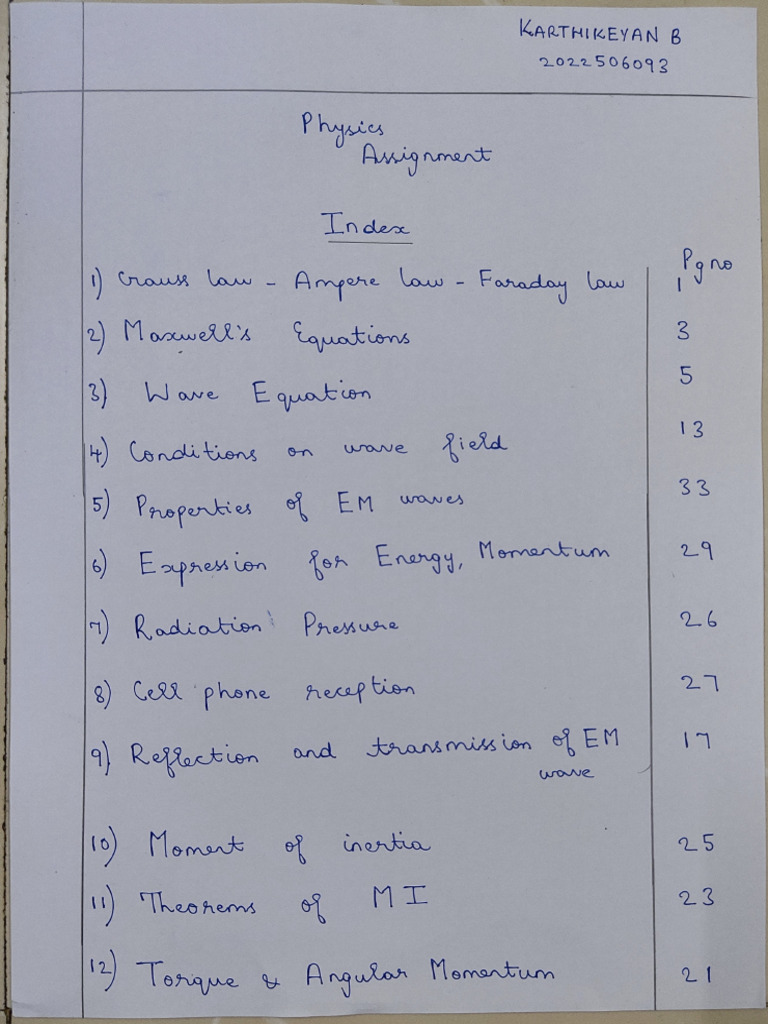 KARTHIKEYAN B
2022506093
Physics
Assignment
Index
Pg no
1) Gauss law - Ampere law - Faraday law 1
2) Maxwell's Equations 3
3) Wave Equation 5
4) Conditions on wave field 13
5) Properties of EM waves 33
6) Expression for Energy, Momentum 29
7) Radiation Pressure 26
8) Cell phone reception 27
9) Reflection and transmission of EM 17
wave
10) Moment of inertia 25
11) Theorems of MI 23
12) Torque & Angular Momentum 21